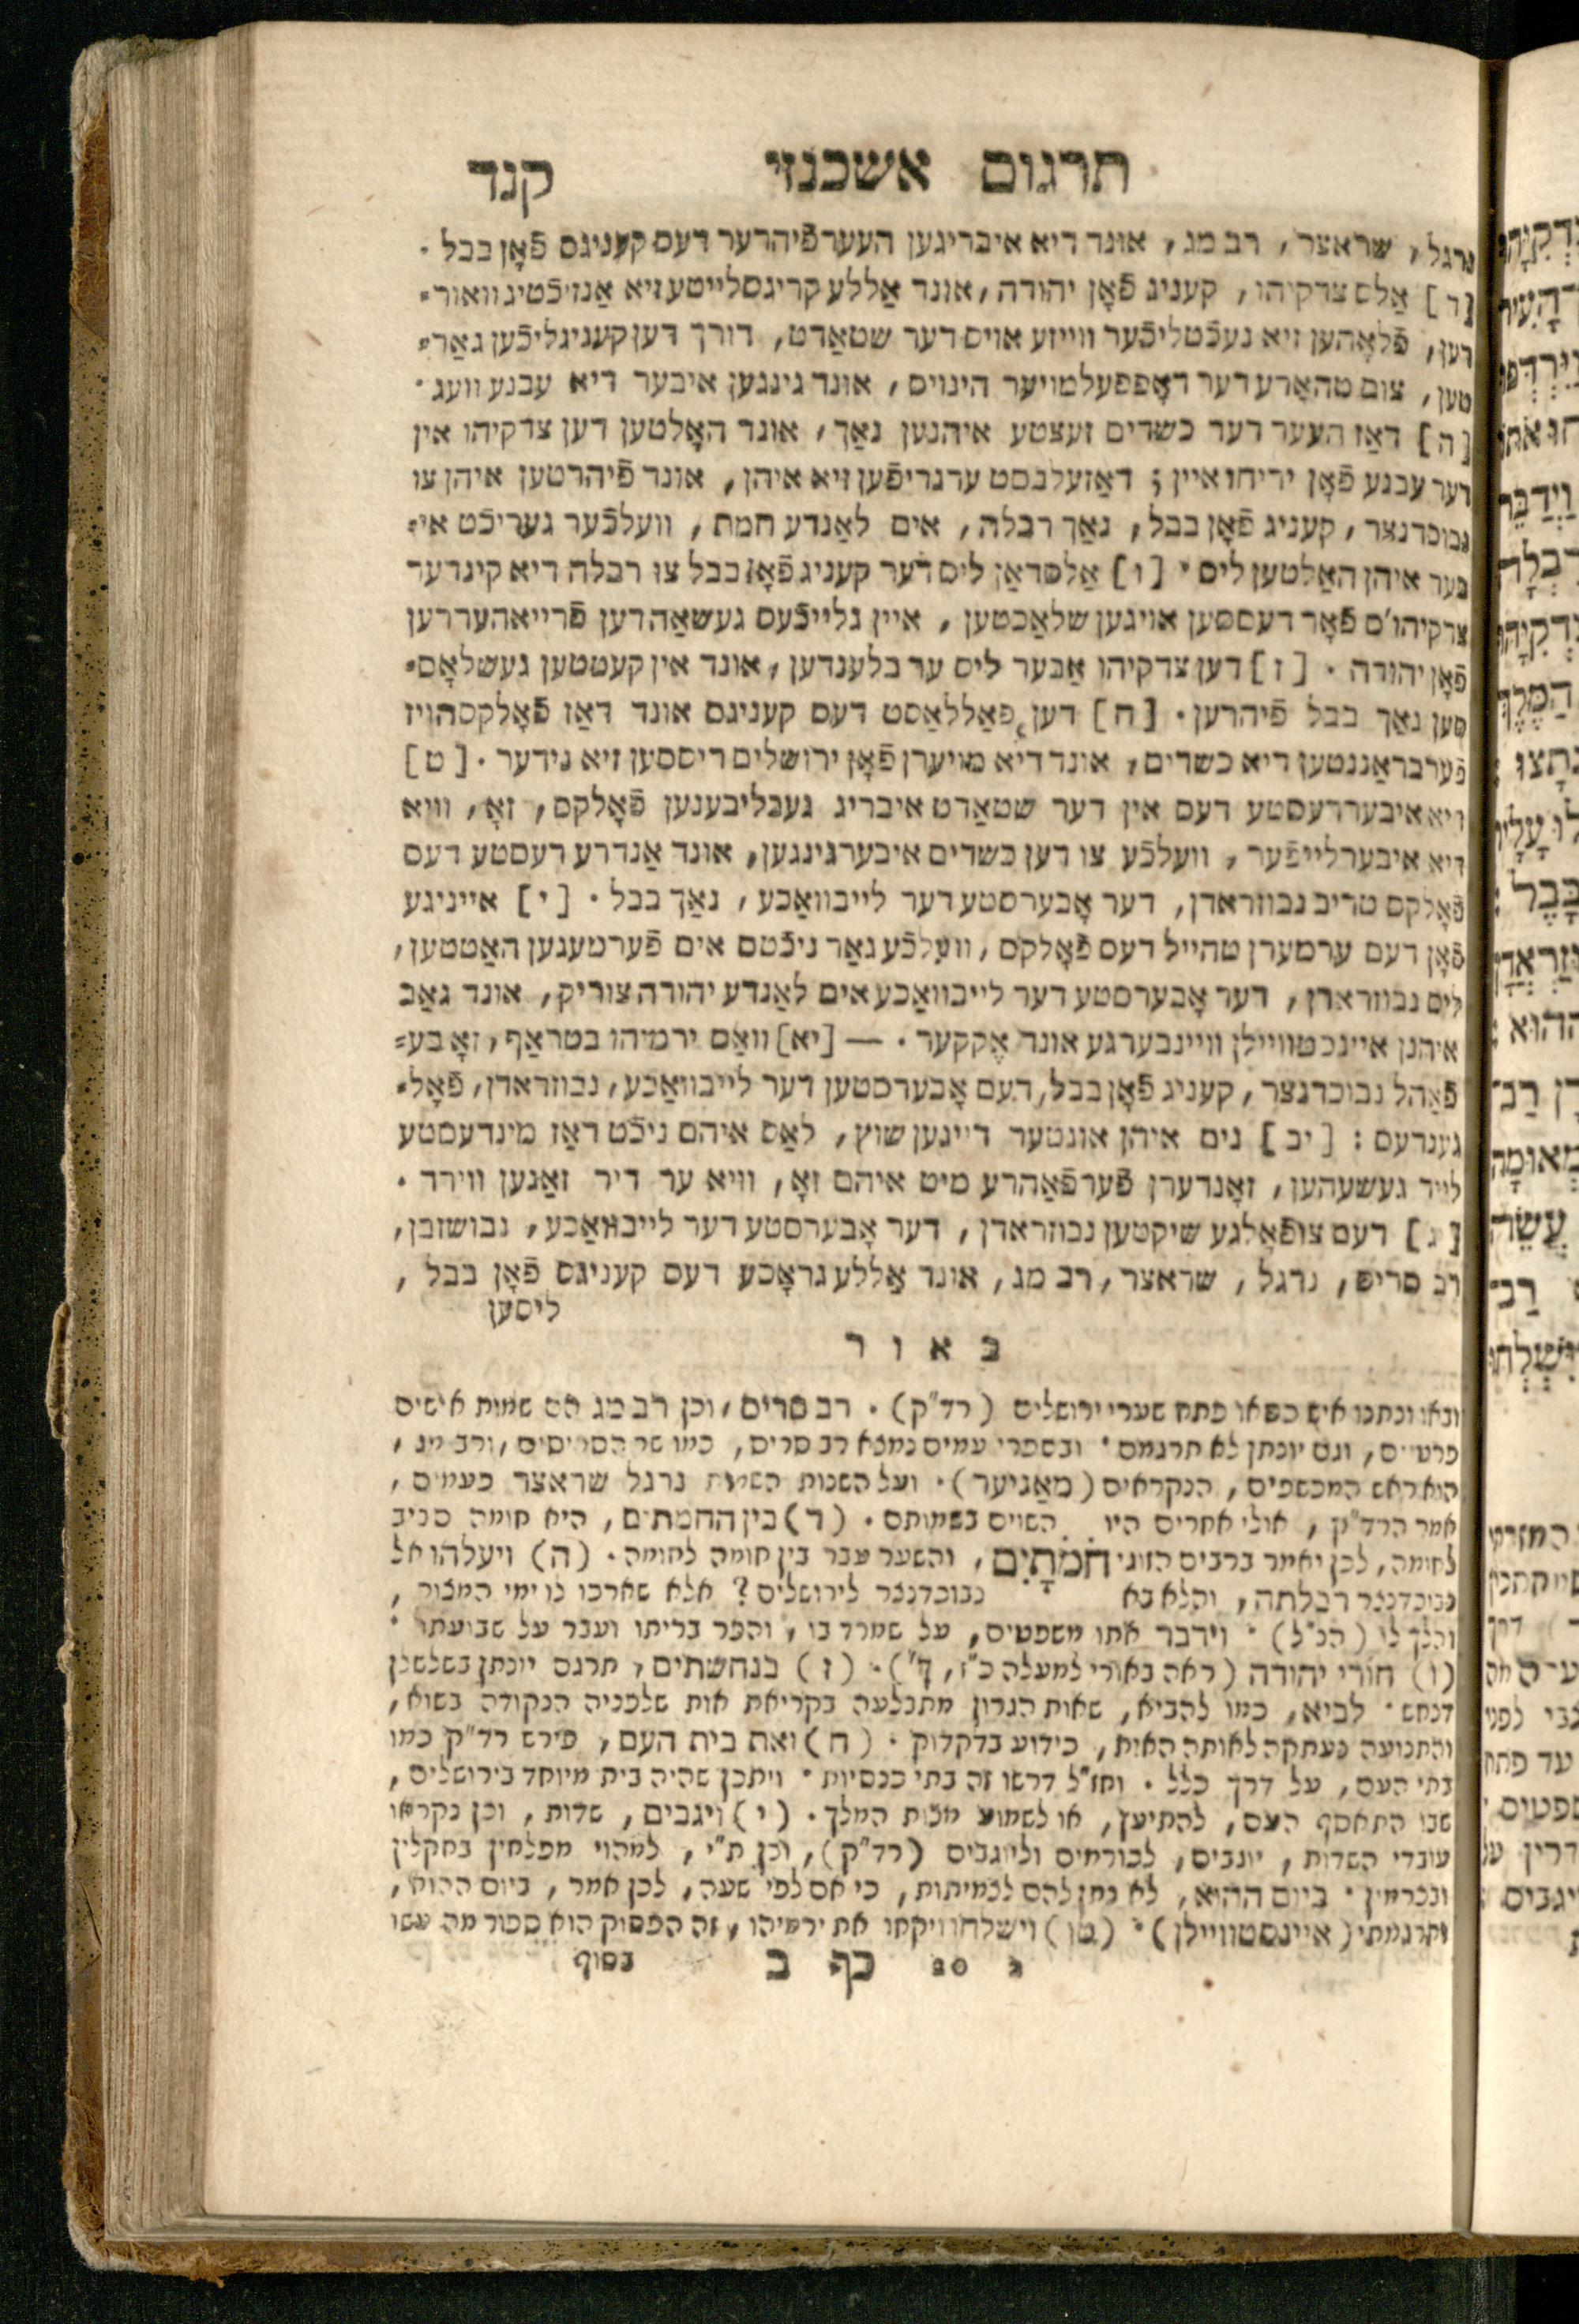 תרגום אשכנזי קנד
נרגל, שראצר, רב מג, אונד דיא איבריגען העערפֿיהרער דעס קעניגס פֿאָן בבל.
[ד] אַלס צדקיהו, קעניג פֿאָן יהודה, אונד אַללע קריגסלייטע זיא אַנזיכֿטיג וואור=
דען, פֿלאָהען זיא נעכֿטליכֿער ווייזע אויס דער שטאַדט, דורך דען קעניגליכֿען גאַר=
טען, צום טהאָרע דער דאָפפעלמויער הינויס, אונד גינגען איבער דיא עבנע וועג.
[ה] דאַז העער דער כשדים זעצטע איהנען נאַך, אונד האָלטען דען צדקיהו אין
דער עבנע פֿאָן יריחו איין; דאַזעלבסט ערגריפֿען זיא איהן, אונד פֿיהרטען איהן צו
נבוכדנצר, קעניג פֿאָן בבל, נאַך רבלה, אים לאַנדע חמת, וועלכֿער געריכֿט אי=
בער איהן האַלטען ליס. [ו] אַלסדאַן ליס דער קעניג פֿאָן בבל צו רבלה דיא קינדער
צדקיהו'ס פֿאָר דעססען אויגען שלאַכטען, איין גלייכֿעס געשאַהדען פֿרייאהעררען
פֿאָן יהודה. [ז] דען צדקיהו אַבער ליס ער בלענדען, אונד אין קעטטען געשלאָס=
סען נאַך בבל פֿיהרען. [ח] דען פאַללאַסט דעס קעניגס אונד דאַז פֿאָלקסהויז
פֿערבראַננטען דיא כשדים, אונד דיא מויערן פֿאָן ירושלים ריססען זיא נידער. [ט]
דיא איבעררעסטע דעס אין דער שטאַדט איבריג געבליבענען פֿאָלקס, זאָ, וויא
דיא איבערלייפֿער, וועלכֿע צו דען כשדים איבערגינגען, אונד אַנדרע רעסטע דעס
פֿאָלקס טריב נבוזראדן, דער אָבערסטע דער לייבוואַכע, נאַך בבל. [י] אייניגע
פֿאָן דעם ערמערן טהייל דעס פֿאָלקס, וועלכֿע גאַר ניכֿטס אים פֿערמעגען האַטטען,
ליס נבוזראדן, דער אָבערסטע דער לייבוואַכע אים לאַנדע יהודה צוריק, אונד גאַב
איהנן איינכטוויילן וויינבערגע אונד אֶקקער. — [יא] וואַס ירמיהו בטראַף, זאָ בע=
פֿאַהל נבוכדנצר, קעניג פֿאָן בבל, דעם אָבערסטען דער לייבוואַכע, נבוזראדן, פֿאָל=
גענדעס: [יב] נים איהן אונטער דיינען שוץ, לאַס איהם ניכֿט דאַז מינדעסטע
לייד געשעהען, זאָנדערן פֿערפֿאַהרע מיט איהם זאָ, וויא ער דיר זאַגען ווירד.
[יג] דעם צופֿאָלגע שיקטען נבוזראדן, דער אָבערסטע דער לייבוואַכע, נבושזבן,
רב סריס, נרגל, שראצר, רב מג, אונד אַללע גראָסע דעס קעניגס פֿאָן בבל,
ליסען
באור
ובאו ונתנו איש כסאו פתח שערי ירושלים (רד"ק). רב סריס, וכן רב מג הם שמות אישים
פרטיים, וגם יונתן לא תרגמם. ובספרי עמים נמצא רב סריס, כמו שר הסריסים, ורב מג,
הוא ראש המכשפים, הנקראים (מאַגיער). ועל השנות השמות נרגל שראצר פעמים,
אמר הרד"ק, אולי אחרים היו השוים בשמותם. (ד) בין החמתים, היא חומה סביב
לחומה, לכן יאמר ברבים הזוגי חֹמֹתָיִם, והשער עבר בין חומה לחומה. (ה) ויעלהו אל
נבוכדנצר רבלתה, והלא בא נבוכדנצר לירושלים? אלא שארכו לו ימי המצור,
והלך לו (הנ"ל). וידבר אתו משפטים, על שמרד בו, והפר בריתו ועבר על שבועתו.
(ו) חורי יהודה (ראה באורי למעלה כ"ז, ך'). (ז) בנחשתים, תרגם יונתן בשלשלן
דנחש. לביא, כמו להביא, שאות הגרון מתבלעה בקריאת אות שלפניה הנקודה בשוא,
והתנועה נעתקה לאותה האות, כידוע בדקדוק. (ח) ואת בית העם, פירש רד"ק כמו
בתי העם, על דרך כלל. וחז"ל דרשו זה בתי כנסיות. ויתכן שהיה בית מיוחד בירושלים,
שבו התאסף העם, להתיעץ, או לשמוע מצות המלך. (י) ויגבים, שדות, וכן נקראו
עובדי השדות, יוגבים, לכורמים וליוגבים (רד"ק), וכן ת"י, למהוי מפלחין בחקלין
ובכרמין. ביום ההוא, לא נתן להם לצמיתות, כי אם לפי שעה, לכן אמר, ביום ההוא,
ותרגמתי (איינסטוויילן). (טו) וישלחו ויקחו את ירמיהו, זה הפסוק הוא ספור מה עשו
20 כף ב בסוף